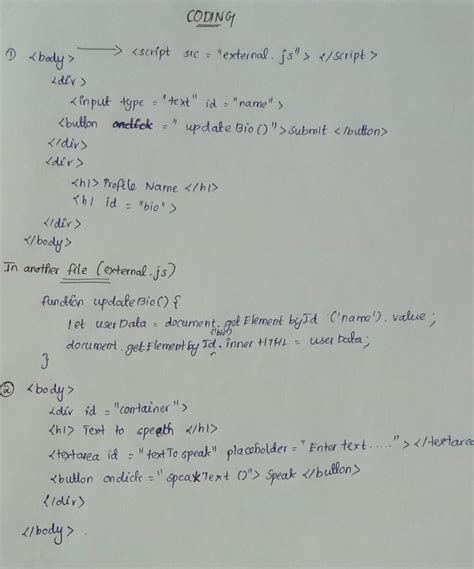 CODING
① <body> ⟶ <script src = "external.js"> </script>
<div>
<input type = "text" id = "name">
<button onclick = " updateBio()">Submit </button>
</div>
<div>
<h1> Profile Name </h1>
<h1 id = "bio">
</div>
</body>
In another file (external.js)
function updateBio() {
let userData = document.getElement byId ('name').value;
document.getElementby Id ('bio'). inner HTML = userData;
}
② <body>
<div id = "container">
<h1> Text to speath </h1>
<textarea id = "textTo speak" placeholder = "Enter text....."> </textarea
<button onclick = "speakText ()"> Speak </button>
</div>
</body>